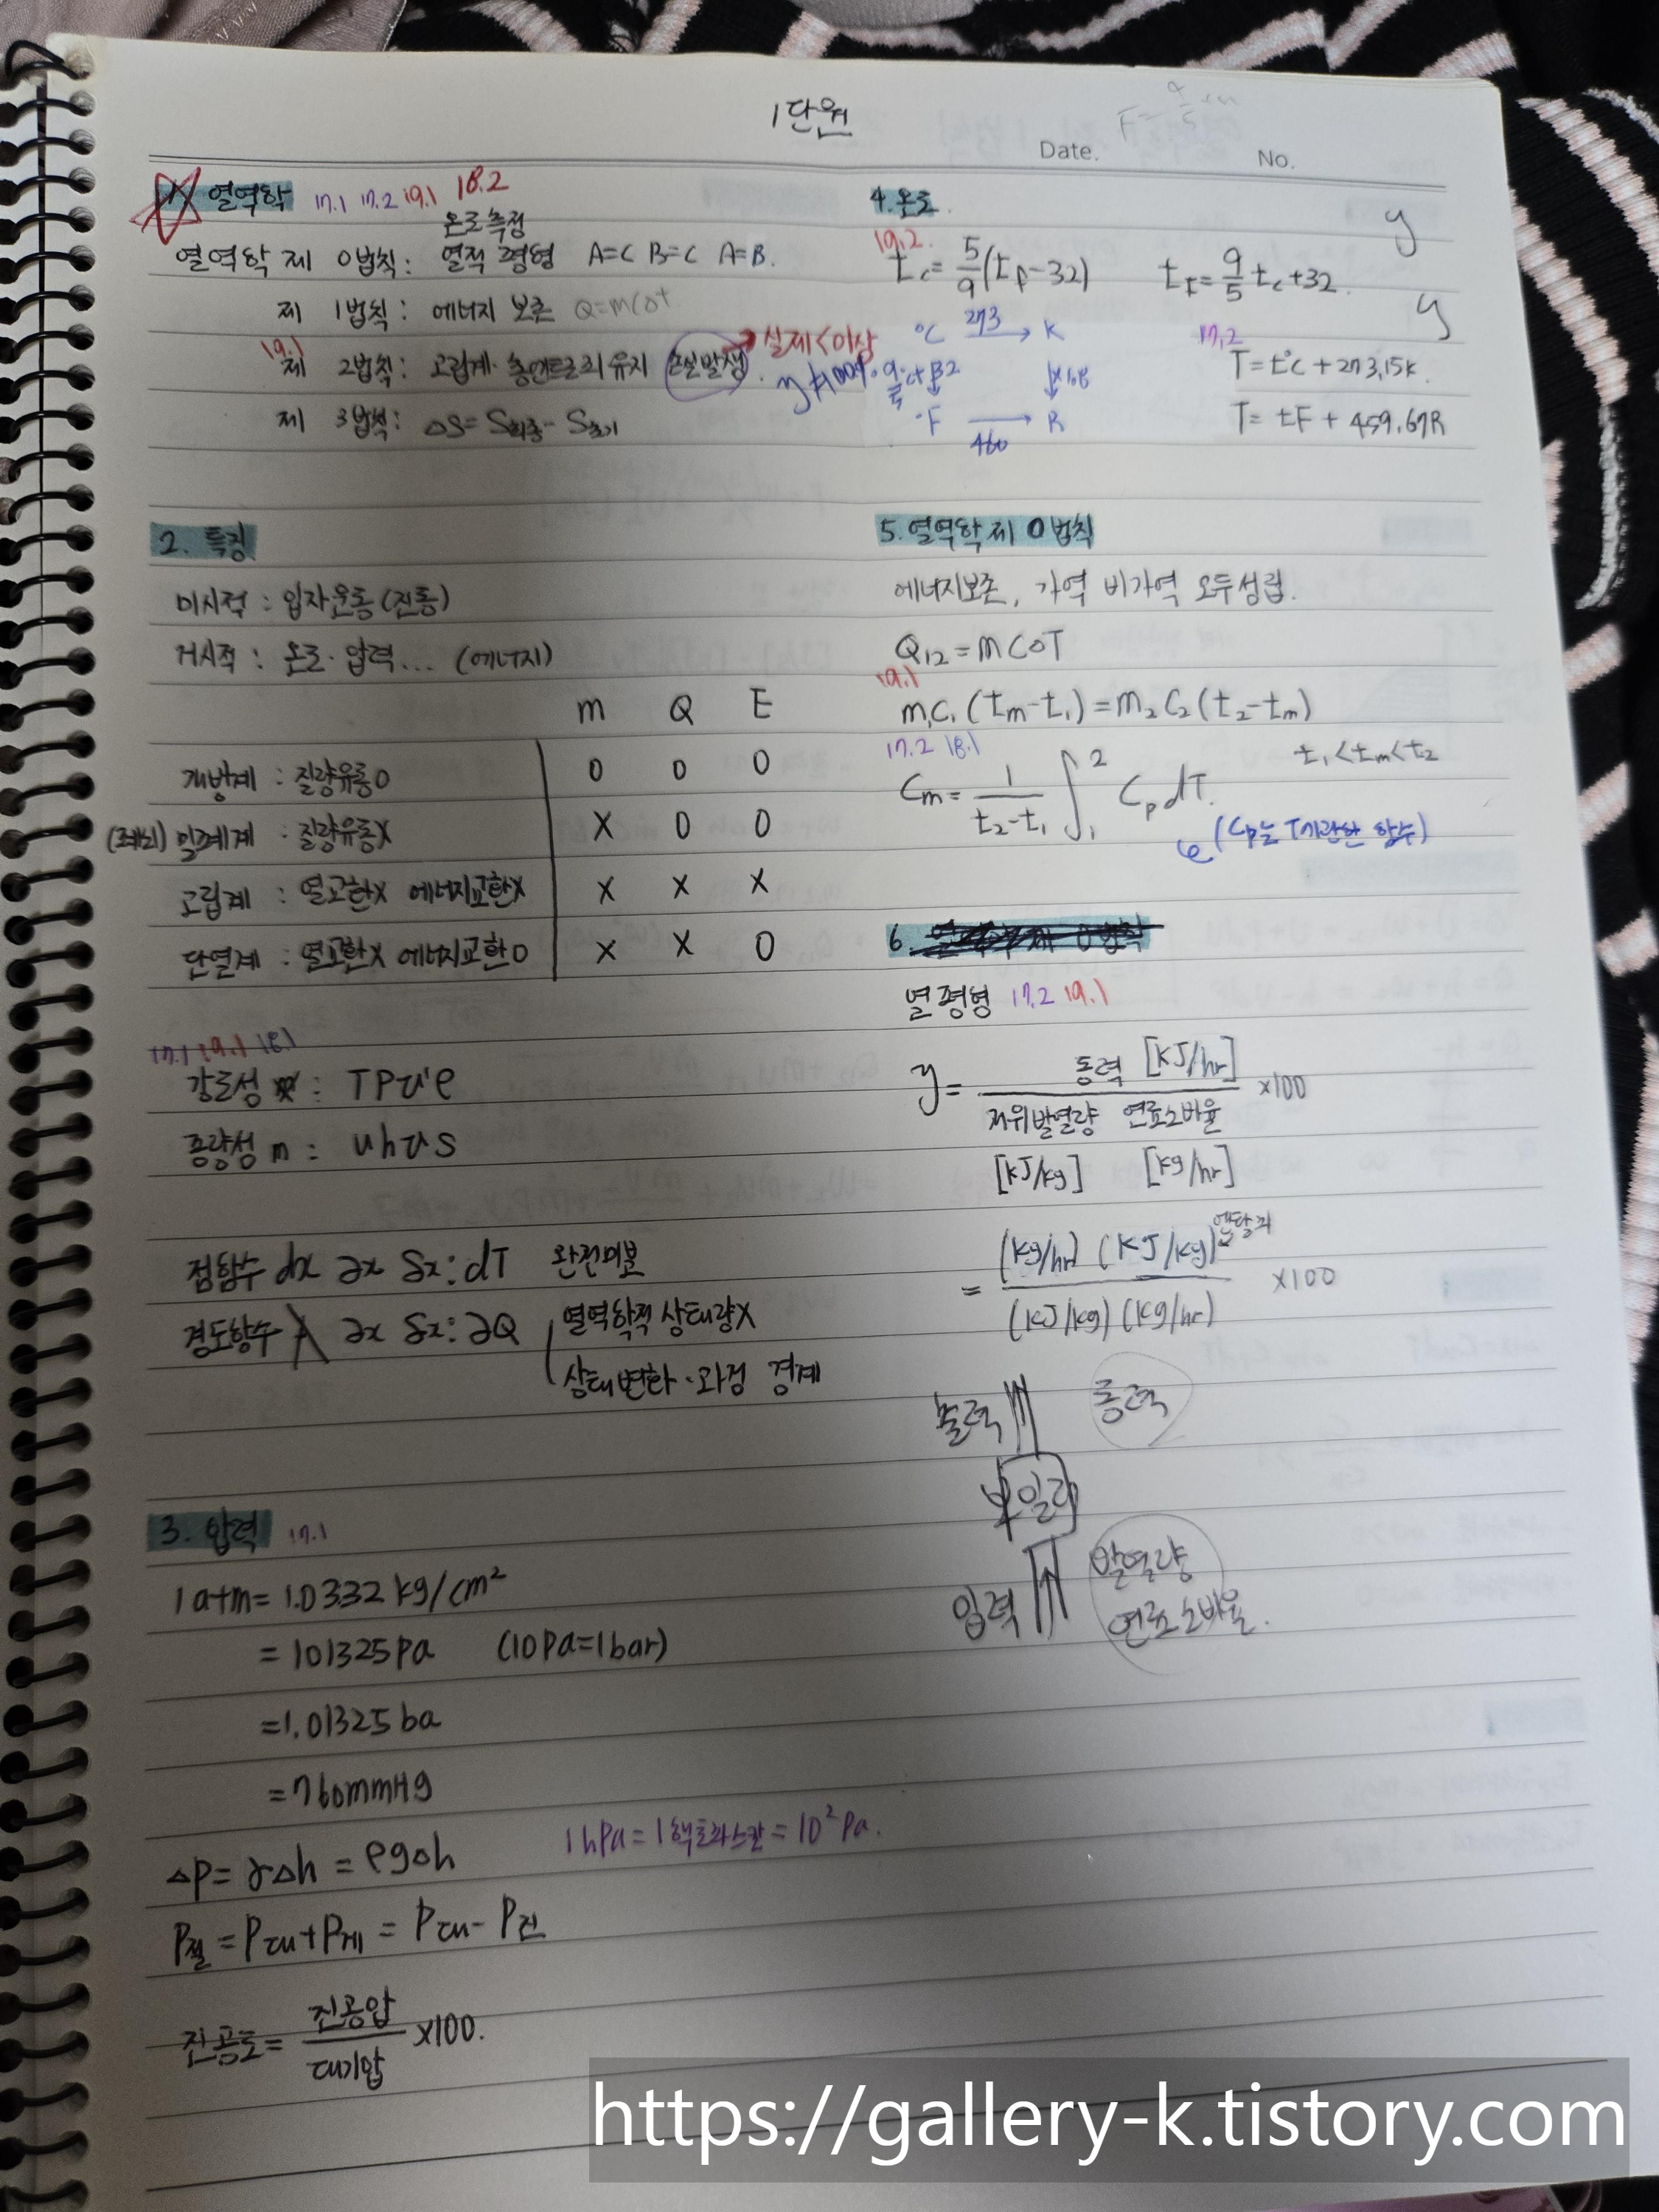 1단원
Date.
No.
1. 열역학 17.1 17.2 19.1 18.2
온도측정
열역학 제 0법칙: 열적 평형 A=C B=C A=B.
제 1법칙: 에너지 보존 Q=mC△t
19.1
제 2법칙: 고립계·총엔트로피 유지 손실발생 → 실제<이상
제 3법칙: △S= S최종- S초기
2. 특징
미시적 : 입자운동(진동)
거시적 : 온도·압력... (에너지)
m Q E
개방계 : 질량유동O O O O
(폐쇄) 밀폐계 : 질량유동X X O O
고립계 : 열교환X 에너지교환X X X X
단열계 : 열교환X 에너지교환O X X O
17.1 19.1 18.1
강도성 : T P
종량성 m : u h v s
점함수 dx ∂x δx: dT 완전미분
경도함수 ∂x δx: ∂Q 열역학적 상태량X
상태변화·과정 경계
3. 압력 17.1
1atm= 1.0332 kg/cm²
= 101325pa (10Pa=1bar)
=1.01325 ba
=760mmHg
1hPa= 1헥토파스칼 = 10² Pa.
△P= γ△h = ρg△h
P절 = P대+P게 = P대- P진
진공도= 진공압/대기압 ×100.
4. 온도
19.2
tc= 5/9(tf-32) tF= 9/5 tc+32.
°C 273 → K
°F 460 → R
17.2
T= t°C + 273.15K.
T= tF + 459.67R
5. 열역학 제 0법칙
에너지보존, 가역 비가역 모두성립.
Q12 = mC△T
19.1
m1C1 (tm-t1) = m2C2 (t2-tm)
17.2 18.1
t1<tm<t2
Cm= 1/(t2-t1) ∫1 2 Cp dT.
(Cp는 T에관한 함수)
6.
열평형 17.2 19.1
y= 동력 [KJ/hr] / 저위발열량 연료소비율 ×100
[KJ/kg] [kg/hr]
엔탈피
= (kg/hr) (KJ/kg) / (KJ/kg) (kg/hr) ×100
출력 동력
보일러
입력 발열량
연료소비율.
https://gallery-k.tistory.com